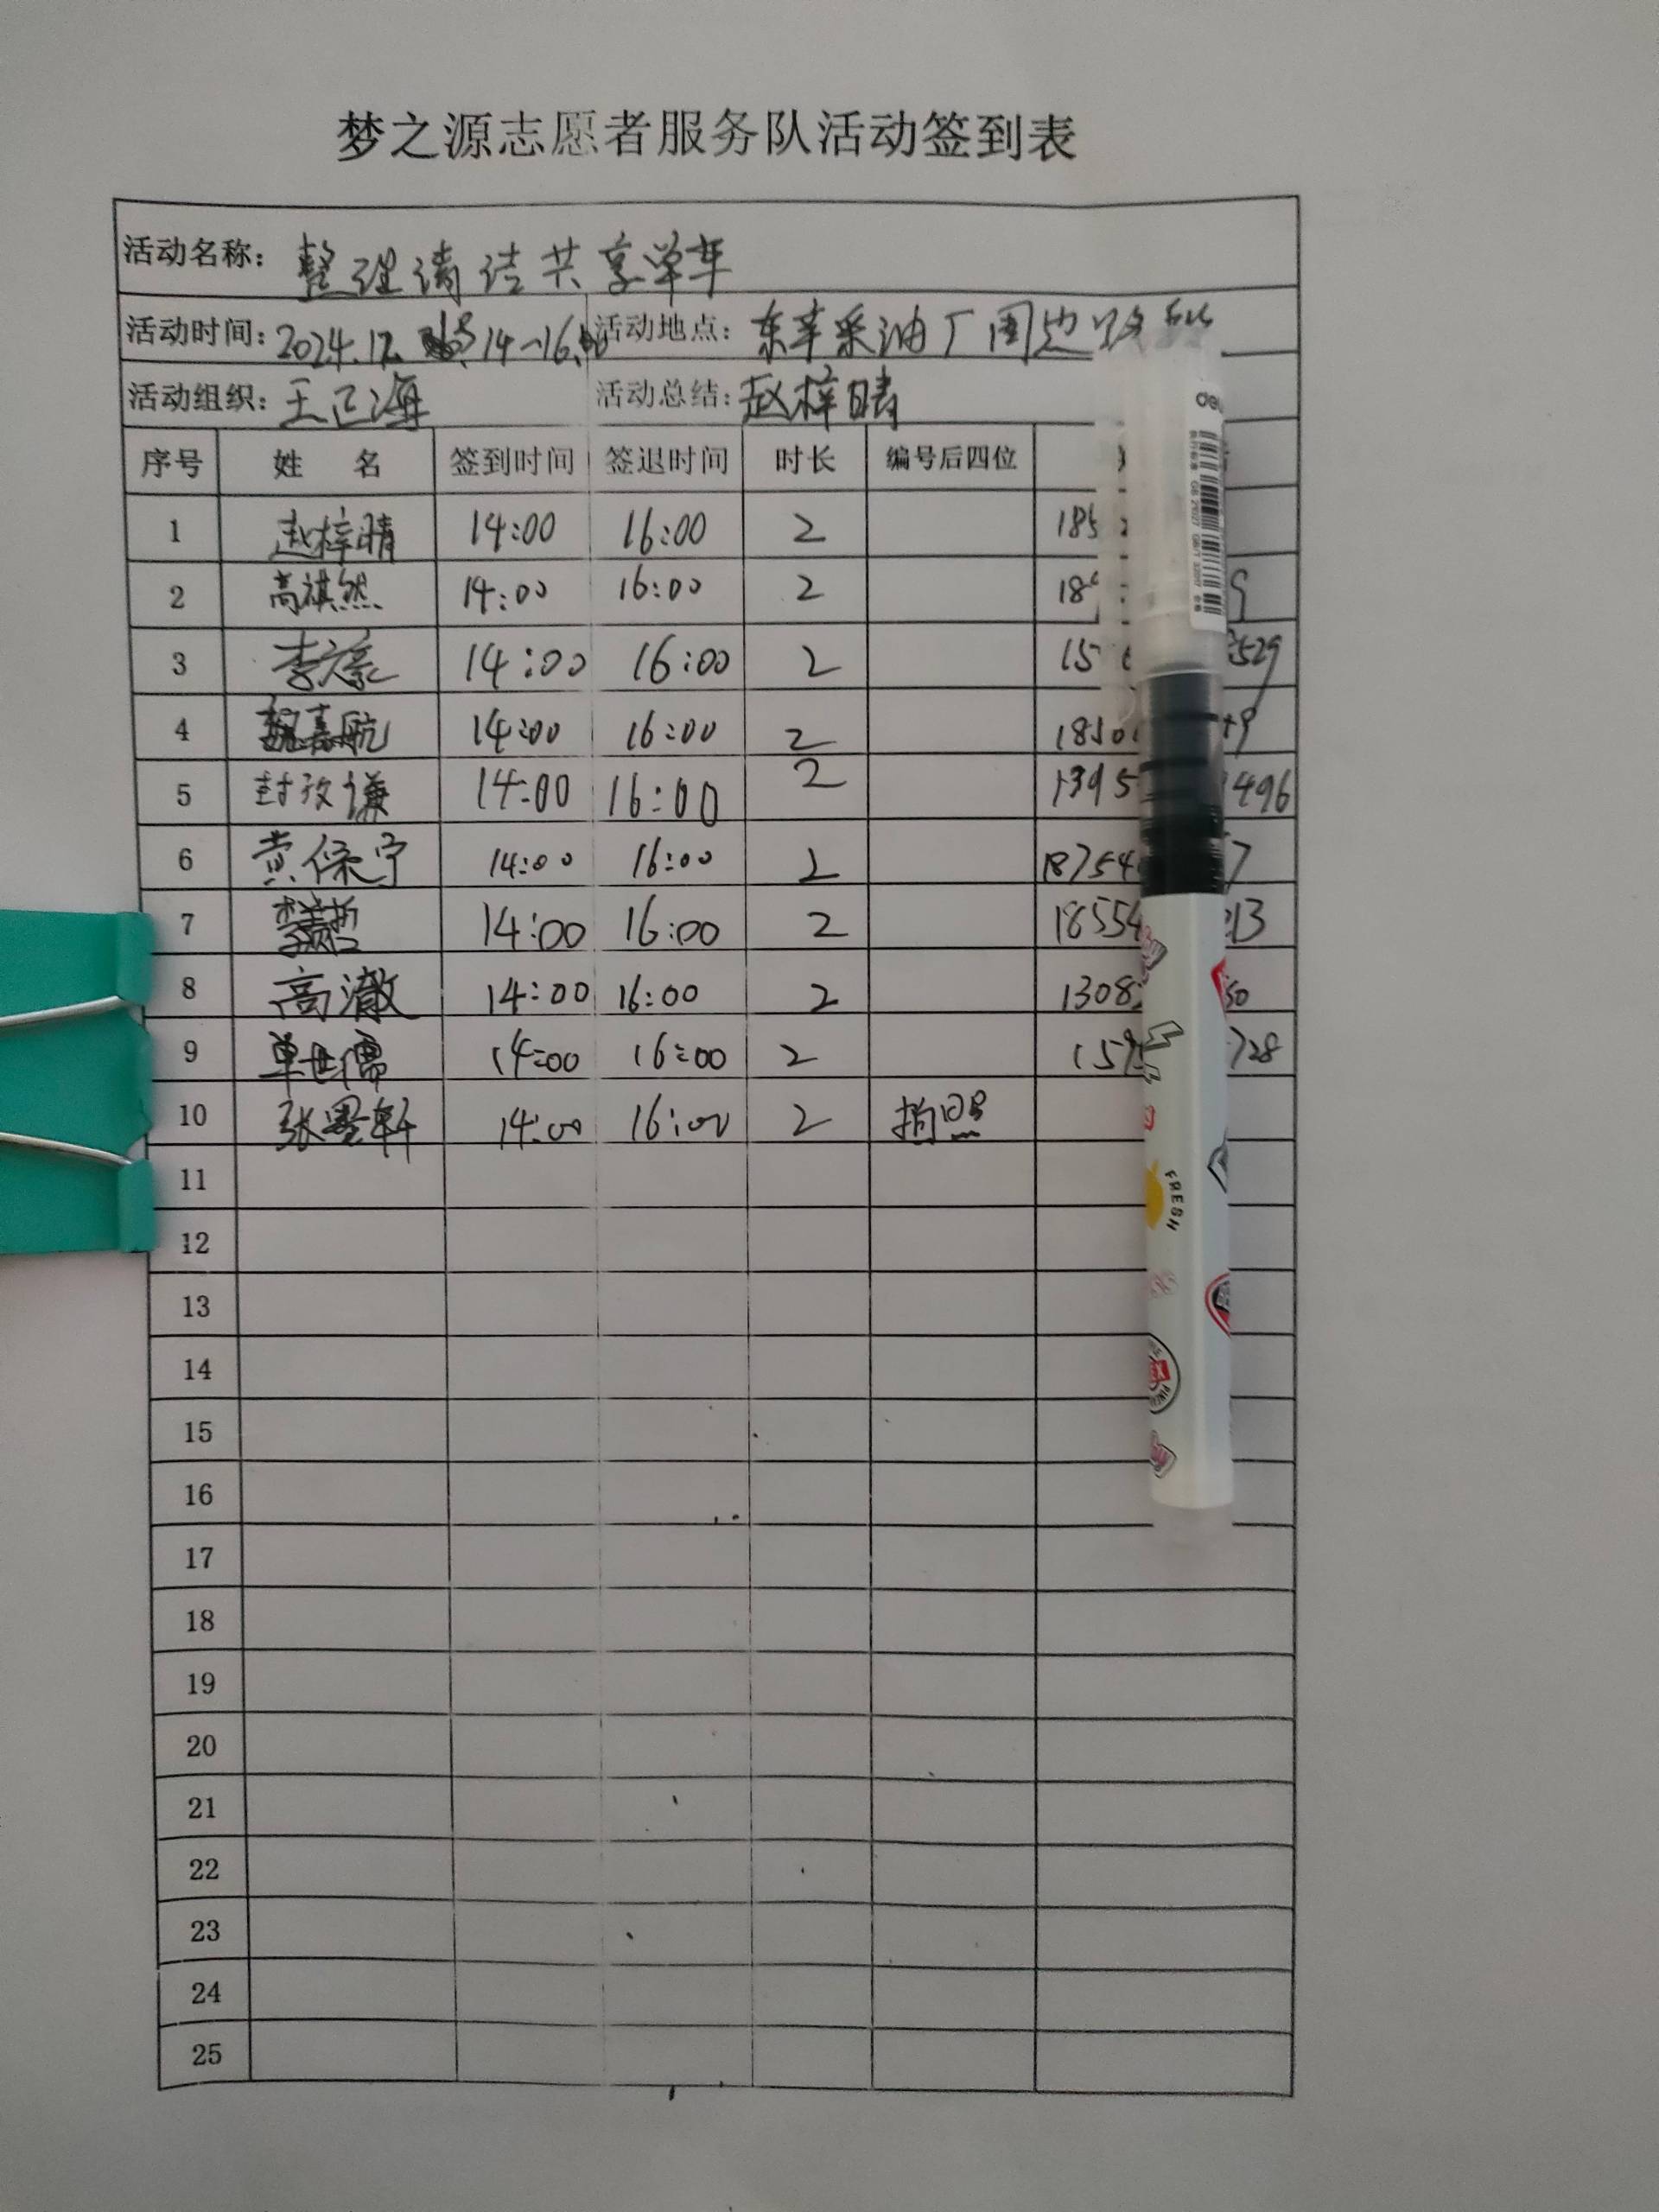 梦之源志愿者服务队活动签到表
活动名称: 整理清洁共享单车
活动时间: 2024.12. 14-16 活动地点: 东辛采油厂周边路
活动组织: 王正海 活动总结: 赵梓晴
序号 姓 名 签到时间 签退时间 时长 编号后四位
1 赵梓晴 14:00 16:00 2 185
2 高祺然 14:00 16:00 2 18 9
3 李 14:00 16:00 2 15 529
4 魏嘉航 14:00 16:00 2 1850 9
5 封孜谦 14:00 16:00 2 1395 1496
6 黄保宁 14:00 16:00 2 18754 7
7 14:00 16:00 2 18554 13
8 高澈 14:00 16:00 2 1308 50
9 单世儒 14:00 16:00 2 159 728
10 张墨轩 14:00 16:00 2 拍照
11
12
13
14
15
16
17
18
19
20
21
22
23
24
25
FRESH